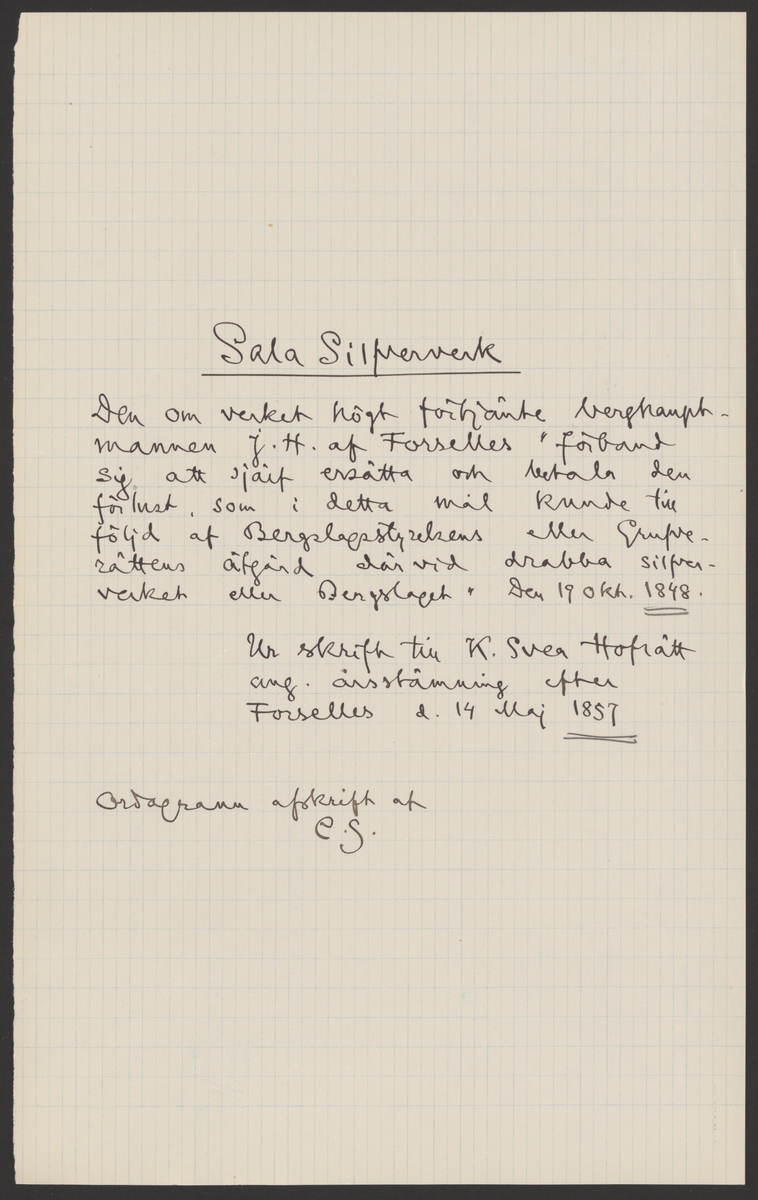 Sala Silfververk
Den om verket högt förtjänte berghaupt-
mannen J. H. af Forselles "förband
sig att sjäjf ersätta och betala den
förlust, som i detta mål kunde till
följd af Bergslagsstyrelsens eller Grufve-
rättens åtgärd därvid drabba silfver-
verket eller Bergslaget" Den 19 Okt. 1848.
Ur skrift till K. Svea Hofrätt
ang. årsstämning efter
Forselles d. 14 Maj 1857
Ordagrann afskrift af
C. S.